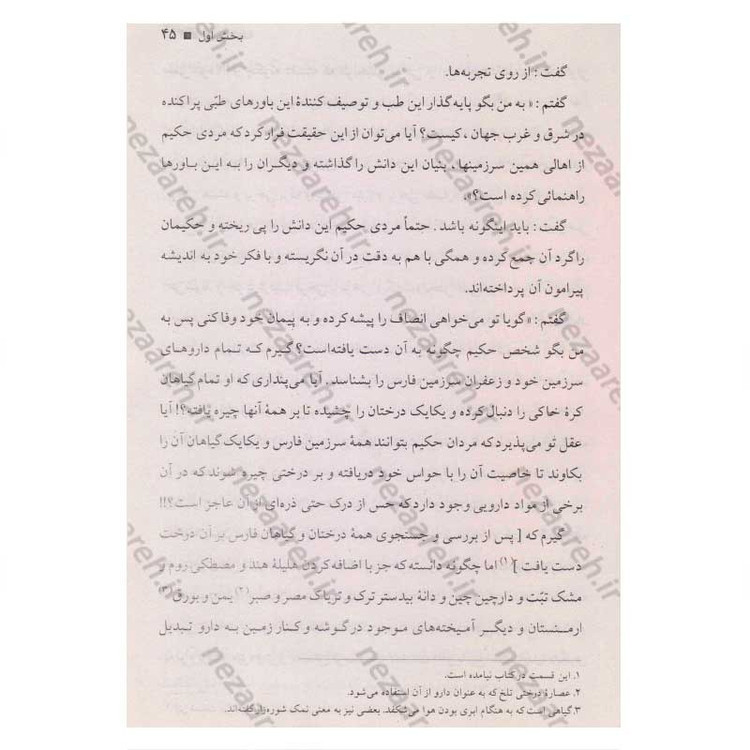 بخش اول ■ ۴۵
گفت: از روی تجربه‌ها.
گفتم: «به من بگو پایه‌گذار این طب و توصیف کنندهٔ این باورهای طبّی پراکنده
در شرق و غرب جهان، کیست؟ آیا می‌توان از این حقیقت فرار کرد که مردی حکیم
از اهالی همین سرزمینها، بنیان این دانش را گذاشته و دیگران را به این باورها
راهنمائی کرده است؟».
گفت: باید اینگونه باشد. حتماً مردی حکیم این دانش را پی ریخته و حکیمان
را گرد آن جمع کرده و همگی با هم به دقت در آن نگریسته و با فکر خود به اندیشه
پیرامون آن پرداخته‌اند.
گفتم: «گویا تو می‌خواهی انصاف را پیشه کرده و به پیمان خود وفا کنی پس به
من بگو شخص حکیم چگونه به آن دست یافته‌است؟ گیرم که تمام داروهای
سرزمین خود و زعفران سرزمین فارس را بشناسد. آیا می‌پنداری که او تمام گیاهان
کرهٔ خاکی را دنبال کرده و یکایک درختان را چشیده تا بر همهٔ آنها چیره یافته؟! آیا
عقل تو می‌پذیرد که مردان حکیم بتوانند همهٔ سرزمین فارس و یکایک گیاهان آن را
بکاوند تا خاصیت آن را با حواس خود دریافته و بر درختی چیره شوند که در آن
برخی از مواد دارویی وجود دارد که حس از درک حتی ذره‌ای از آن عاجز است؟!!
گیرم که [پس از بررسی و جستجوی همهٔ درختان و گیاهان فارس بر آن درخت
دست یافت](۱) اما چگونه دانسته که جز با اضافه کردن هلیلهٔ هند و مصطکی روم و
مشک تبّت و دارچین چین و دانهٔ بیدستر ترک و تریاک مصر و صبر(۲) یمن و بورق(۳)
ارمنستان و دیگر آمیخته‌های موجود در گوشه و کنار زمین به دارو تبدیل
۱. این قسمت در کتاب نیامده است.
۲. عصارهٔ درختی تلخ که به عنوان دارو از آن استفاده می‌شود.
۳. گیاهی است که به هنگام ابری بودن هوا می‌شکفد. بعضی نیز به معنی نمک شوره را گفته‌اند.
nezaareh.ir